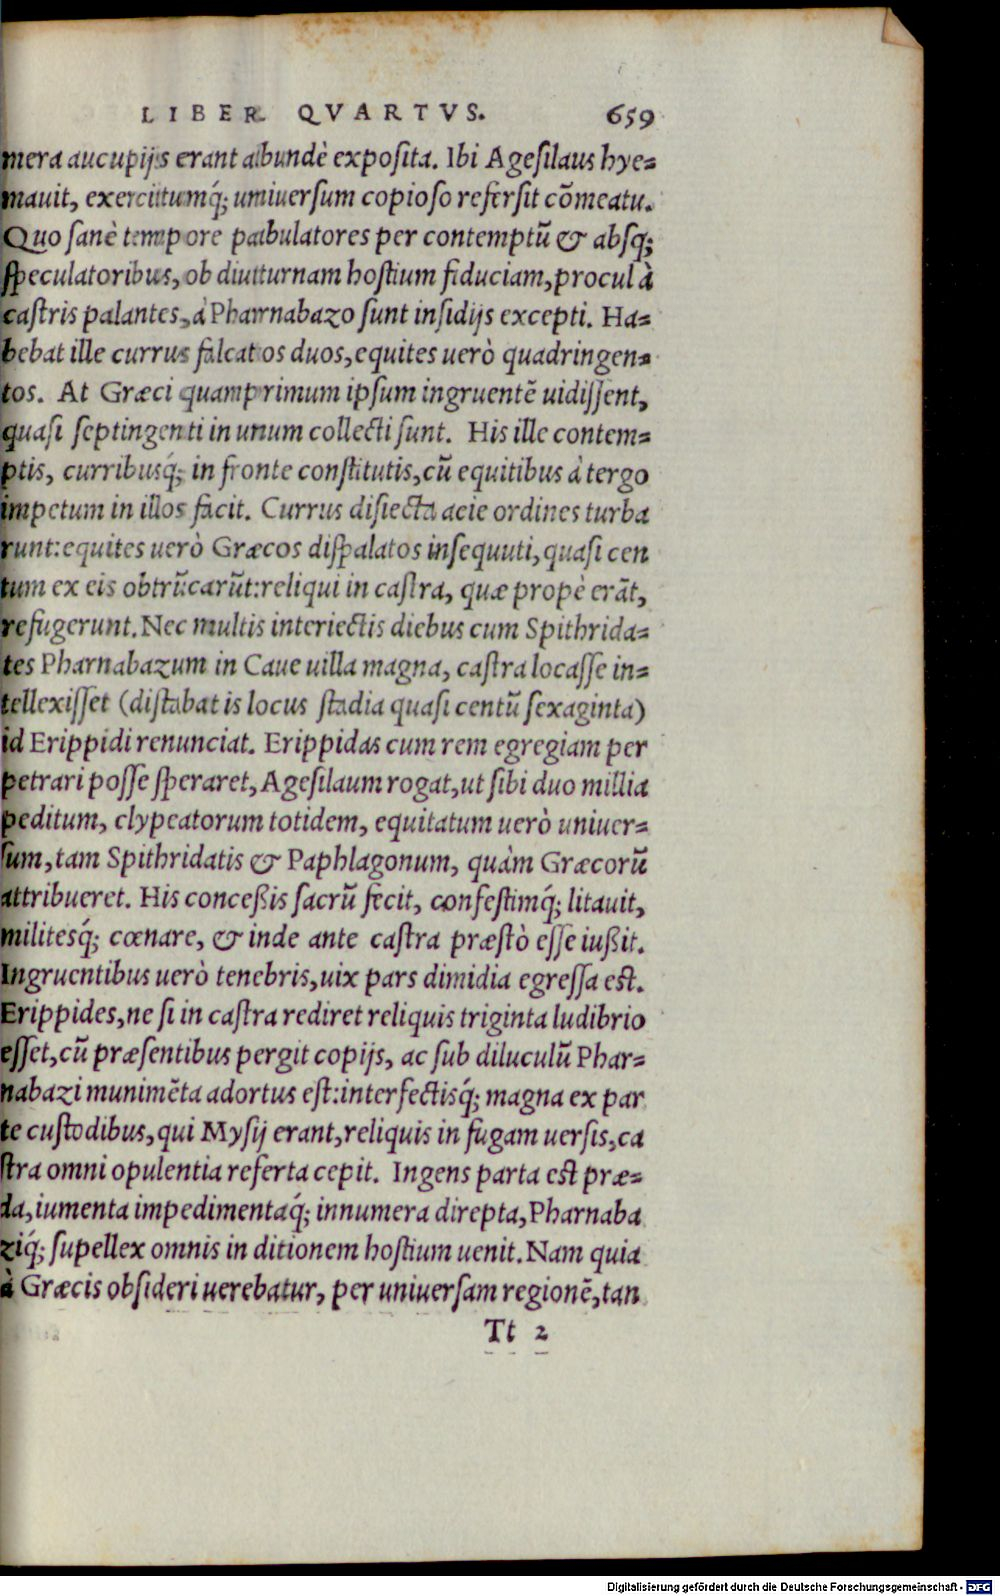 LIBER QVARTVS. 659
mera aucupijs erant abundè exposita. Ibi Agesilaus hye=
mauit, exercitumq́; uniuersum copioso refersit cõmeatu.
Quo sanè tempore pabulatores per contemptũ & absq;
speculatoribus, ob diuturnam hostium fiduciam, procul à
castris palantes, à Pharnabazo sunt insidijs excepti. Ha=
bebat ille currus falcatos duos, equites uerò quadringen=
tos. At Græci quamprimum ipsum ingruentẽ uidissent,
quasi septingenti in unum collecti sunt. His ille contem=
ptis, curribusq́; in fronte constitutis, cũ equitibus à tergo
impetum in illos facit. Currus disiecta acie ordines turba
runt: equites uerò Græcos dispalatos insequuti, quasi cen
tum ex eis obtrũcarũt: reliqui in castra, quæ propè erãt,
refugerunt. Nec multis interiectis diebus cum Spithrida=
tes Pharnabazum in Caue uilla magna, castra locasse in=
tellexisset (distabat is locus stadia quasi centũ sexaginta)
id Erippidi renunciat. Erippidas cum rem egregiam per
petrari posse speraret, Agesilaum rogat, ut sibi duo millia
peditum, clypeatorum totidem, equitatum uerò uniuer=
sum, tam Spithridatis & Paphlagonum, quàm Græcorũ
attribueret. His conceßis sacrũ fecit, confestimq́; litauit,
militesq́; cœnare, & inde ante castra præstò esse iußit.
Ingruentibus uerò tenebris, uix pars dimidia egressa est.
Erippides, ne si in castra rediret reliquis triginta ludibrio
esset, cũ præsentibus pergit copijs, ac sub diluculũ Phar=
nabazi munimẽta adortus est: interfectisq́; magna ex par
te custodibus, qui Mysij erant, reliquis in fugam uersis, ca
stra omni opulentia referta cepit. Ingens parta est præ=
da, iumenta impedimentaq́; innumera direpta, Pharnaba
ziq́; supellex omnis in ditionem hostium uenit. Nam quia
à Græcis obsideri uerebatur, per uniuersam regionẽ, tan
Tt 2
Digitalisierung gefördert durch die Deutsche Forschungsgemeinschaft - DFG